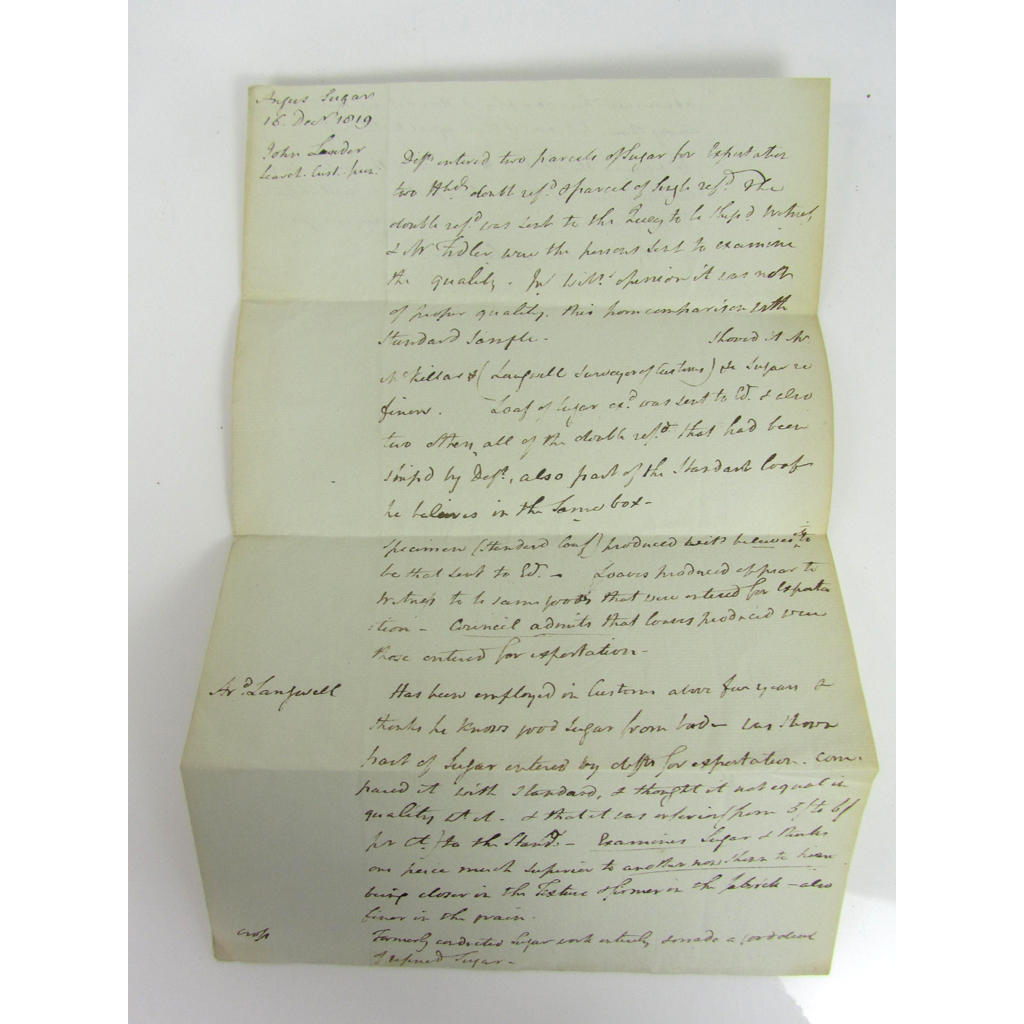 Angus Sugar
16 Decr 1819
John Lauder
Search. Cust. pur.
Defrs entered two parcels of Sugar for Exportation
two Hhds double refd & parcel of Single refd The
double refd was sent to the Quay to be Shipd Witness
& Mr Fidler were the persons sent to examine
the quality. In Wits opinion it was not
of proper quality, this from comparison with
Standard Sample. Showed it Mr
McKellar & (Langwell Surveyor of Customs) Sugar re
finer. Loaf of Sugar exd was sent to Ed. & also
two others, all of the double refd that had been
shipd by Defr, also part of the Standard loaf
he believes in the Same box -
Specimen (Standard loaf) produced wits believes it to
be that sent to Ed. - Loaves produced appear to
Witness to be same goods that were entered for exporta
tion - Council admits that loaves produced were
those entered for exportation -
Ard Langwell
Has been employed in Customs above five years &
thinks he knows good Sugar from bad - was shown
part of Sugar entered by defrs for exportation. Com-
pared it with Standard, & thought it not equal in
quality to it - & that it was inferior from 5/ to 6/
pr Ct to the Stand. - Examines Sugar & thinks
one piece much superior to another now shown to him
being closer in the Texture & firmer in the fabrick - also
finer in the grain.
Cross
Formerly conducted Sugar work entirely & made a good deal
of refined Sugar -